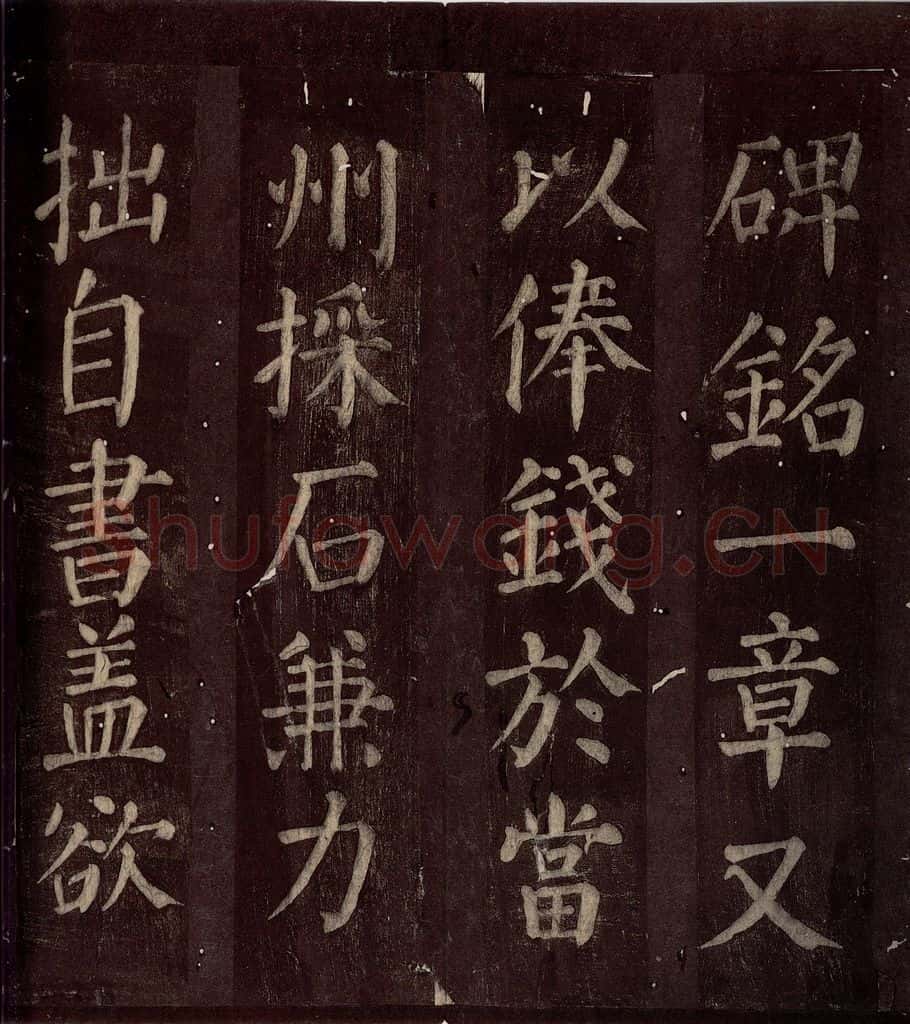 碑銘一章又
以俸錢於當
州採石兼力
拙自書盖欲
shufawang.CN